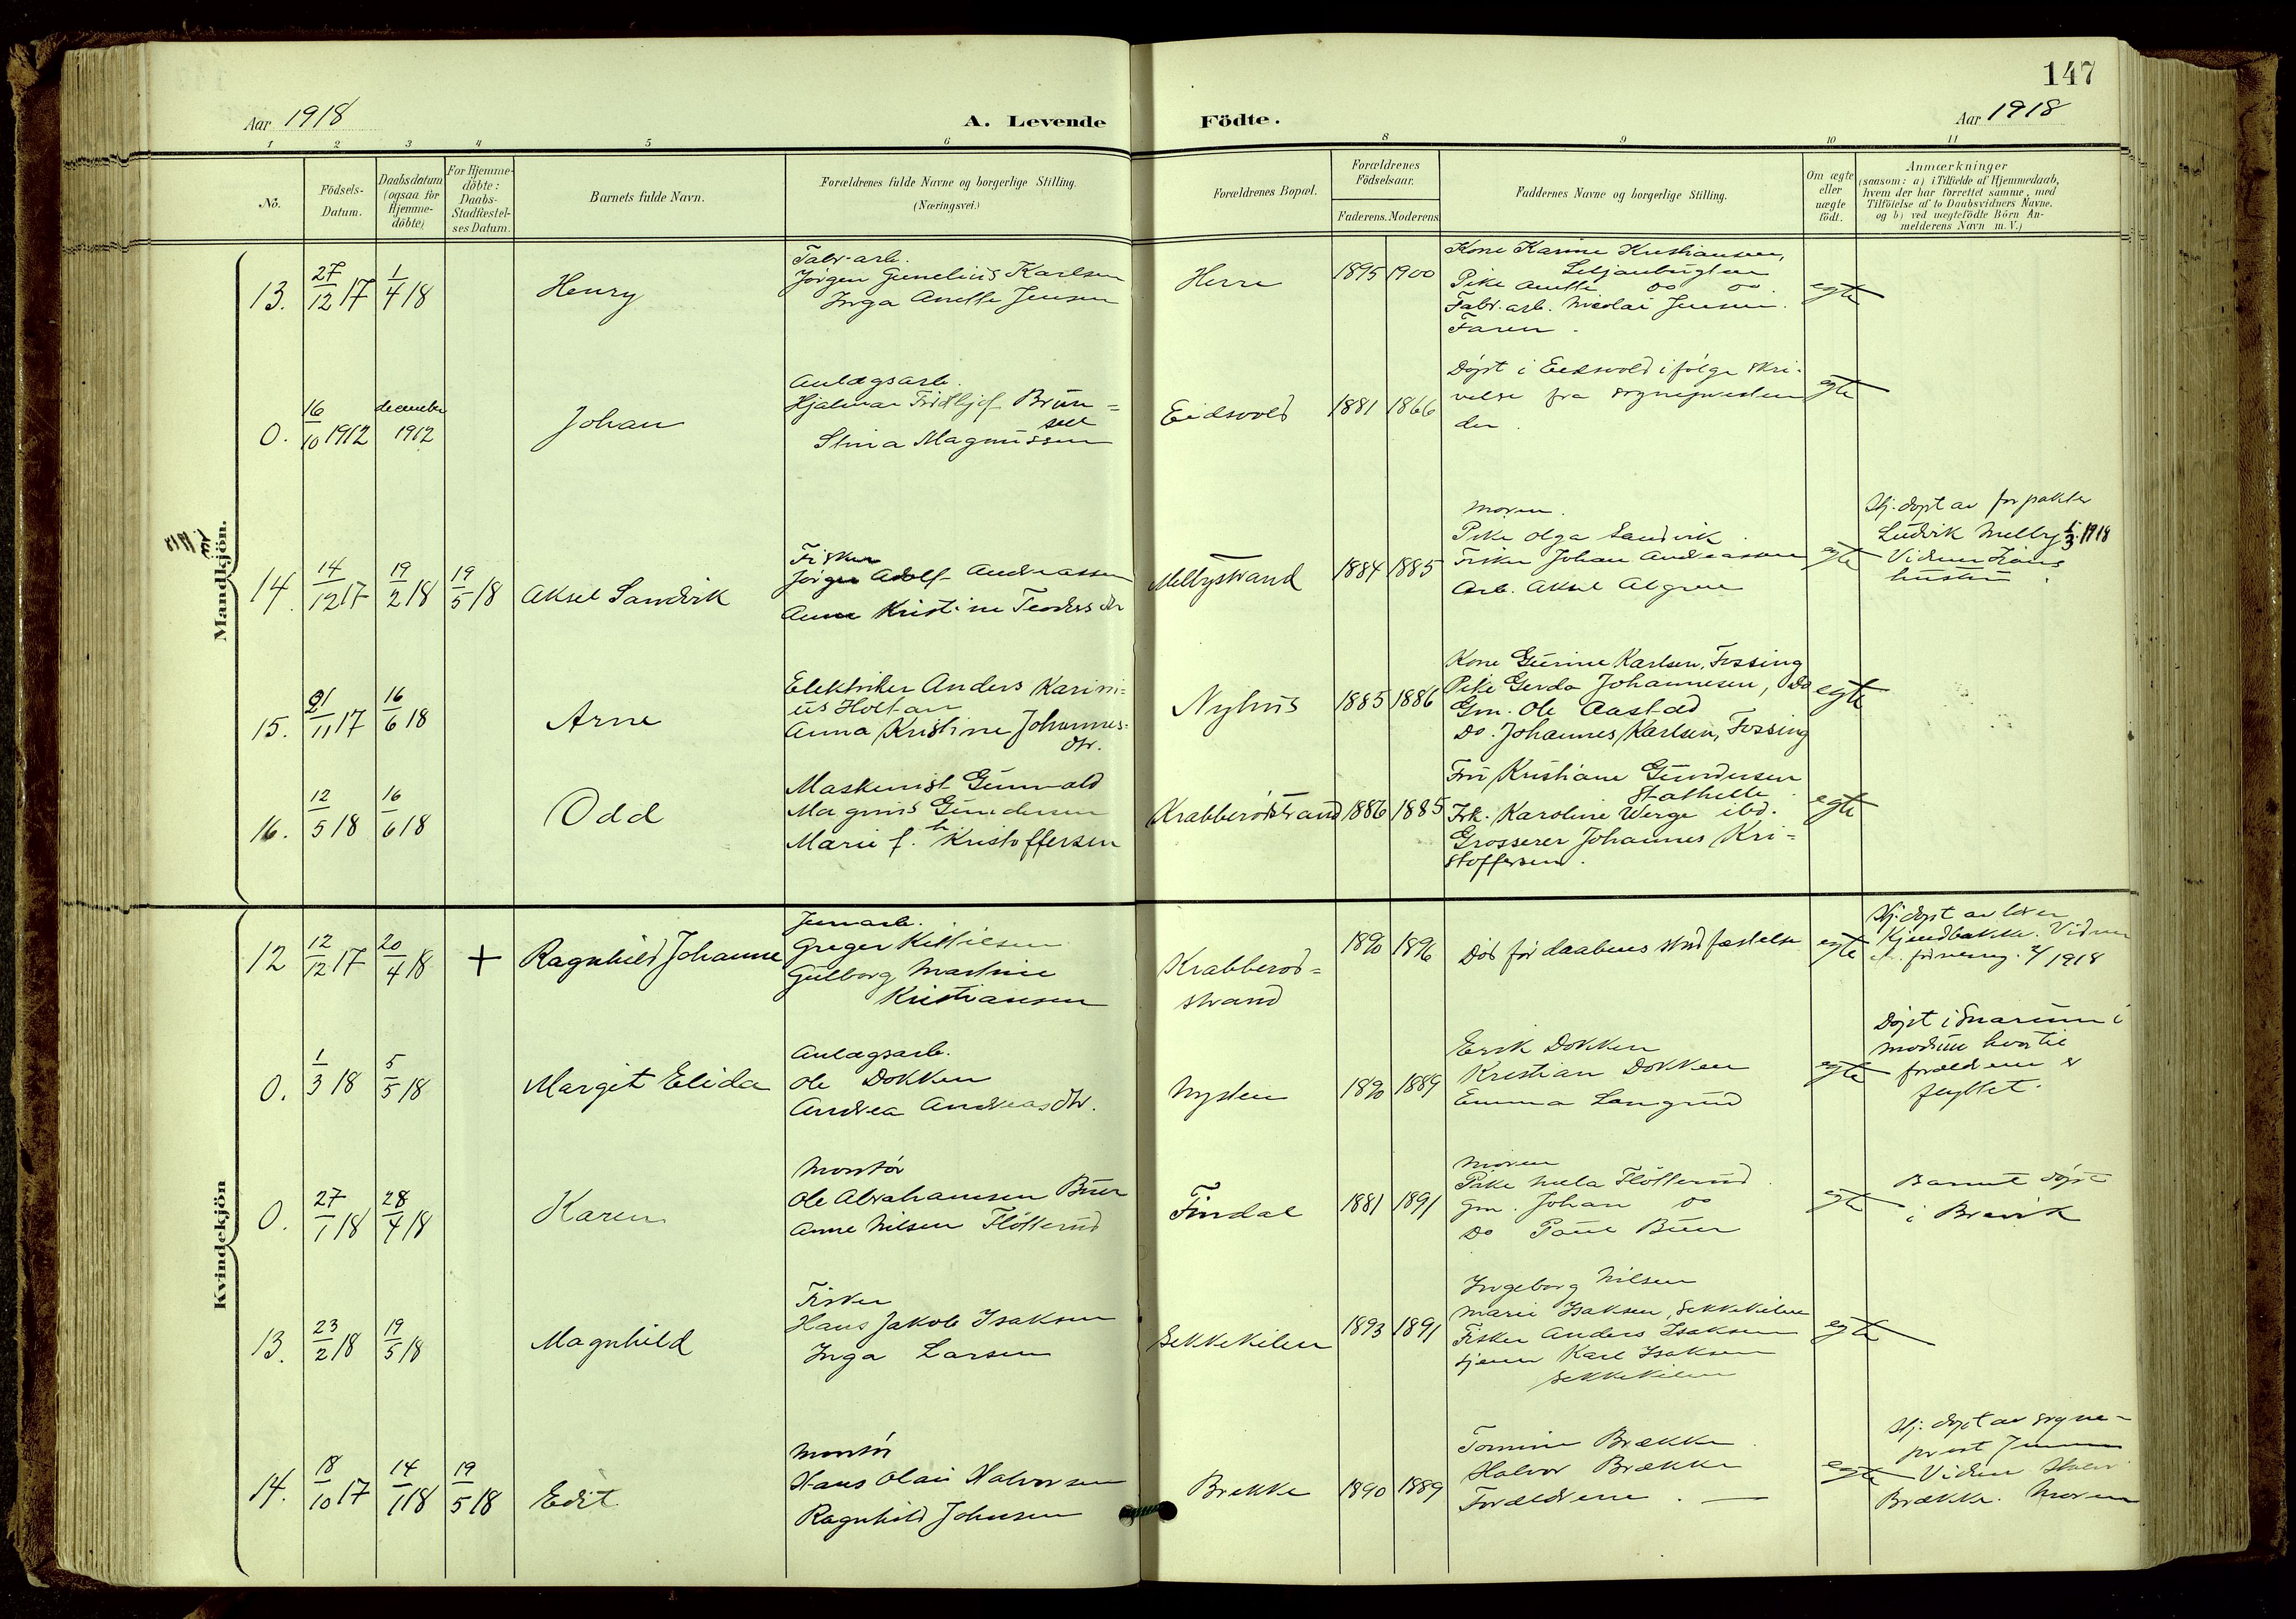 147
Aar 1918
A. Levende Födte.
Aar 1918
1 2 3 4 5 6 8 9 10 11
No.
Födsels-
Datum.
Daabsdatum
(ogsaa for
Hjemme-
döbte)
For Hjemme-
döbte:
Daabs-
Stadfæstel-
ses Datum.
Barnets fulde Navn.
Forældrenes fulde Navne og borgerlige Stilling.
(Næringsvei.)
Forældrenes Bopæl.
Forældrenes
Födselsaar.
Faderens. Moderens.
Faddernes Navne og borgerlige Stilling.
Om ægte
eller
uægte
födt.
Anmærkninger
(saasom: a) i Tilfælde af Hjemmedaab,
hvem der har forrettet samme, med
Tilföielse af to Daabsvidners Navne.
og b) ved uægtefödte Börn An-
melderens Navn m. V.)
Mandkjön.
13. 27/12 17 1/4 18 Henry
Fabr.arb.
Jørgen Gunelius Karlsen
Inga Anette Jensen
Herre 1895 1900
Kone Karine Kristiansen,
Pike Anette
Fabr. arb. Nicolai Jensen.
Faren.
egte
0. 16/10 1912 december
1912
Johan
Anlægsarb.
Hjalmar Fridtjof Brun=
sell
Stina Magnussen
Eidsvold 1881 1866
Døpt i Eidsvold ifølge skri-
velse fra sognepresten
der.
egte
14. 14/12 17 19/2 18 19/5 18 Aksel Sandvik
Fisker
Jørgen Adolf Andreassen
Anne Kristine Teodorsdtr
Melbystrand 1884 1885
Moren.
Pike Olga Sandvik
Fisker Johan Andreassen
Arb. Aksel Algren
egte
Hj. døpt av forpakter
Ludvik Melby 1/3 1918
Vidner Hans
hustru.
15. 21/11 17 16/6 18 Arne
Elektriker Anders Karini=
us Holtan
Anna Kristine Johannes-
dtr.
Nyhus 1885 1886
Kone Gurine Karlsen, Fossing
Pike Gerda Johannesen, Do
Gm. Ole Aastad
Do. Johannes Karlsen, Fossing
egte
16. 12/5 18 16/6 18 Odd
Maskinist Gunvald
Magnus Gundersen
Marie f. Kristoffersen
Krabberødstrand 1886 1885
Fru Kristiane Gundersen
Stathelle.
Frk. Karoline Werge ibd.
Grosserer Johannes Kri=
stoffersen.
egte
Kvindekjön
12 12/12 17 20/4 18 + Ragnhild Johanne
Jernarb.
Greger Kittilsen
Gulborg Martine
Kristiansen
Krabberød=
strand
1890 1896
Død før daabens stadfæstelse
egte
Hj. døpt av
Kjendbakke. Vidner
1918
0. 1/3 18 5/5 18 Margit Elida
Anlægsarb.
Ole Dokken
Andrea Andreasdtr.
Nysten 1890 1889
Erik Dokken
Kristian Dokken
Emma Langrud
egte
Døpt i Snarum i
Modum hvortil
forældrene er
flyttet.
0. 27/1 18 28/4 18 Karen
Montør
Ole Abrahamsen Buer
Anne Nilsen Fløtterud
Findal 1881 1891
Moren
Pike Fløtterud
Gm. Johan
Do Paul Buer
egte
Barnet døpt
i Brevik
13. 23/2 18 19/5 18 Magnhild
Fisker
Hans Jakob Isaksen
Inga Larsen
Sekkekilen 1893 1891
Ingeborg Nilsen
Marie Isaksen, Sekkekilen
Fisker Anders Isaksen
Karl Isaksen
Sekkekilen
egte
14. 18/10 17 14/1 18 19/5 18 Edit
Montør
Hans Olai Halvorsen
Ragnhild Johnsen
Brekke 1890 1889
Tomine Brække
Halvor Brække
Forældrene.
egte
Hj. døpt av sogne-
prest Jensen
Vidner Halvor
Brække. Moren